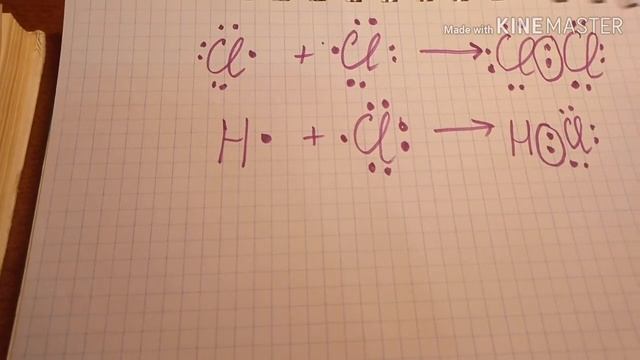 Made with KINEMASTER
:Cl· + ·Cl: → :Cl:Cl:
H· + ·Cl: → H:Cl: